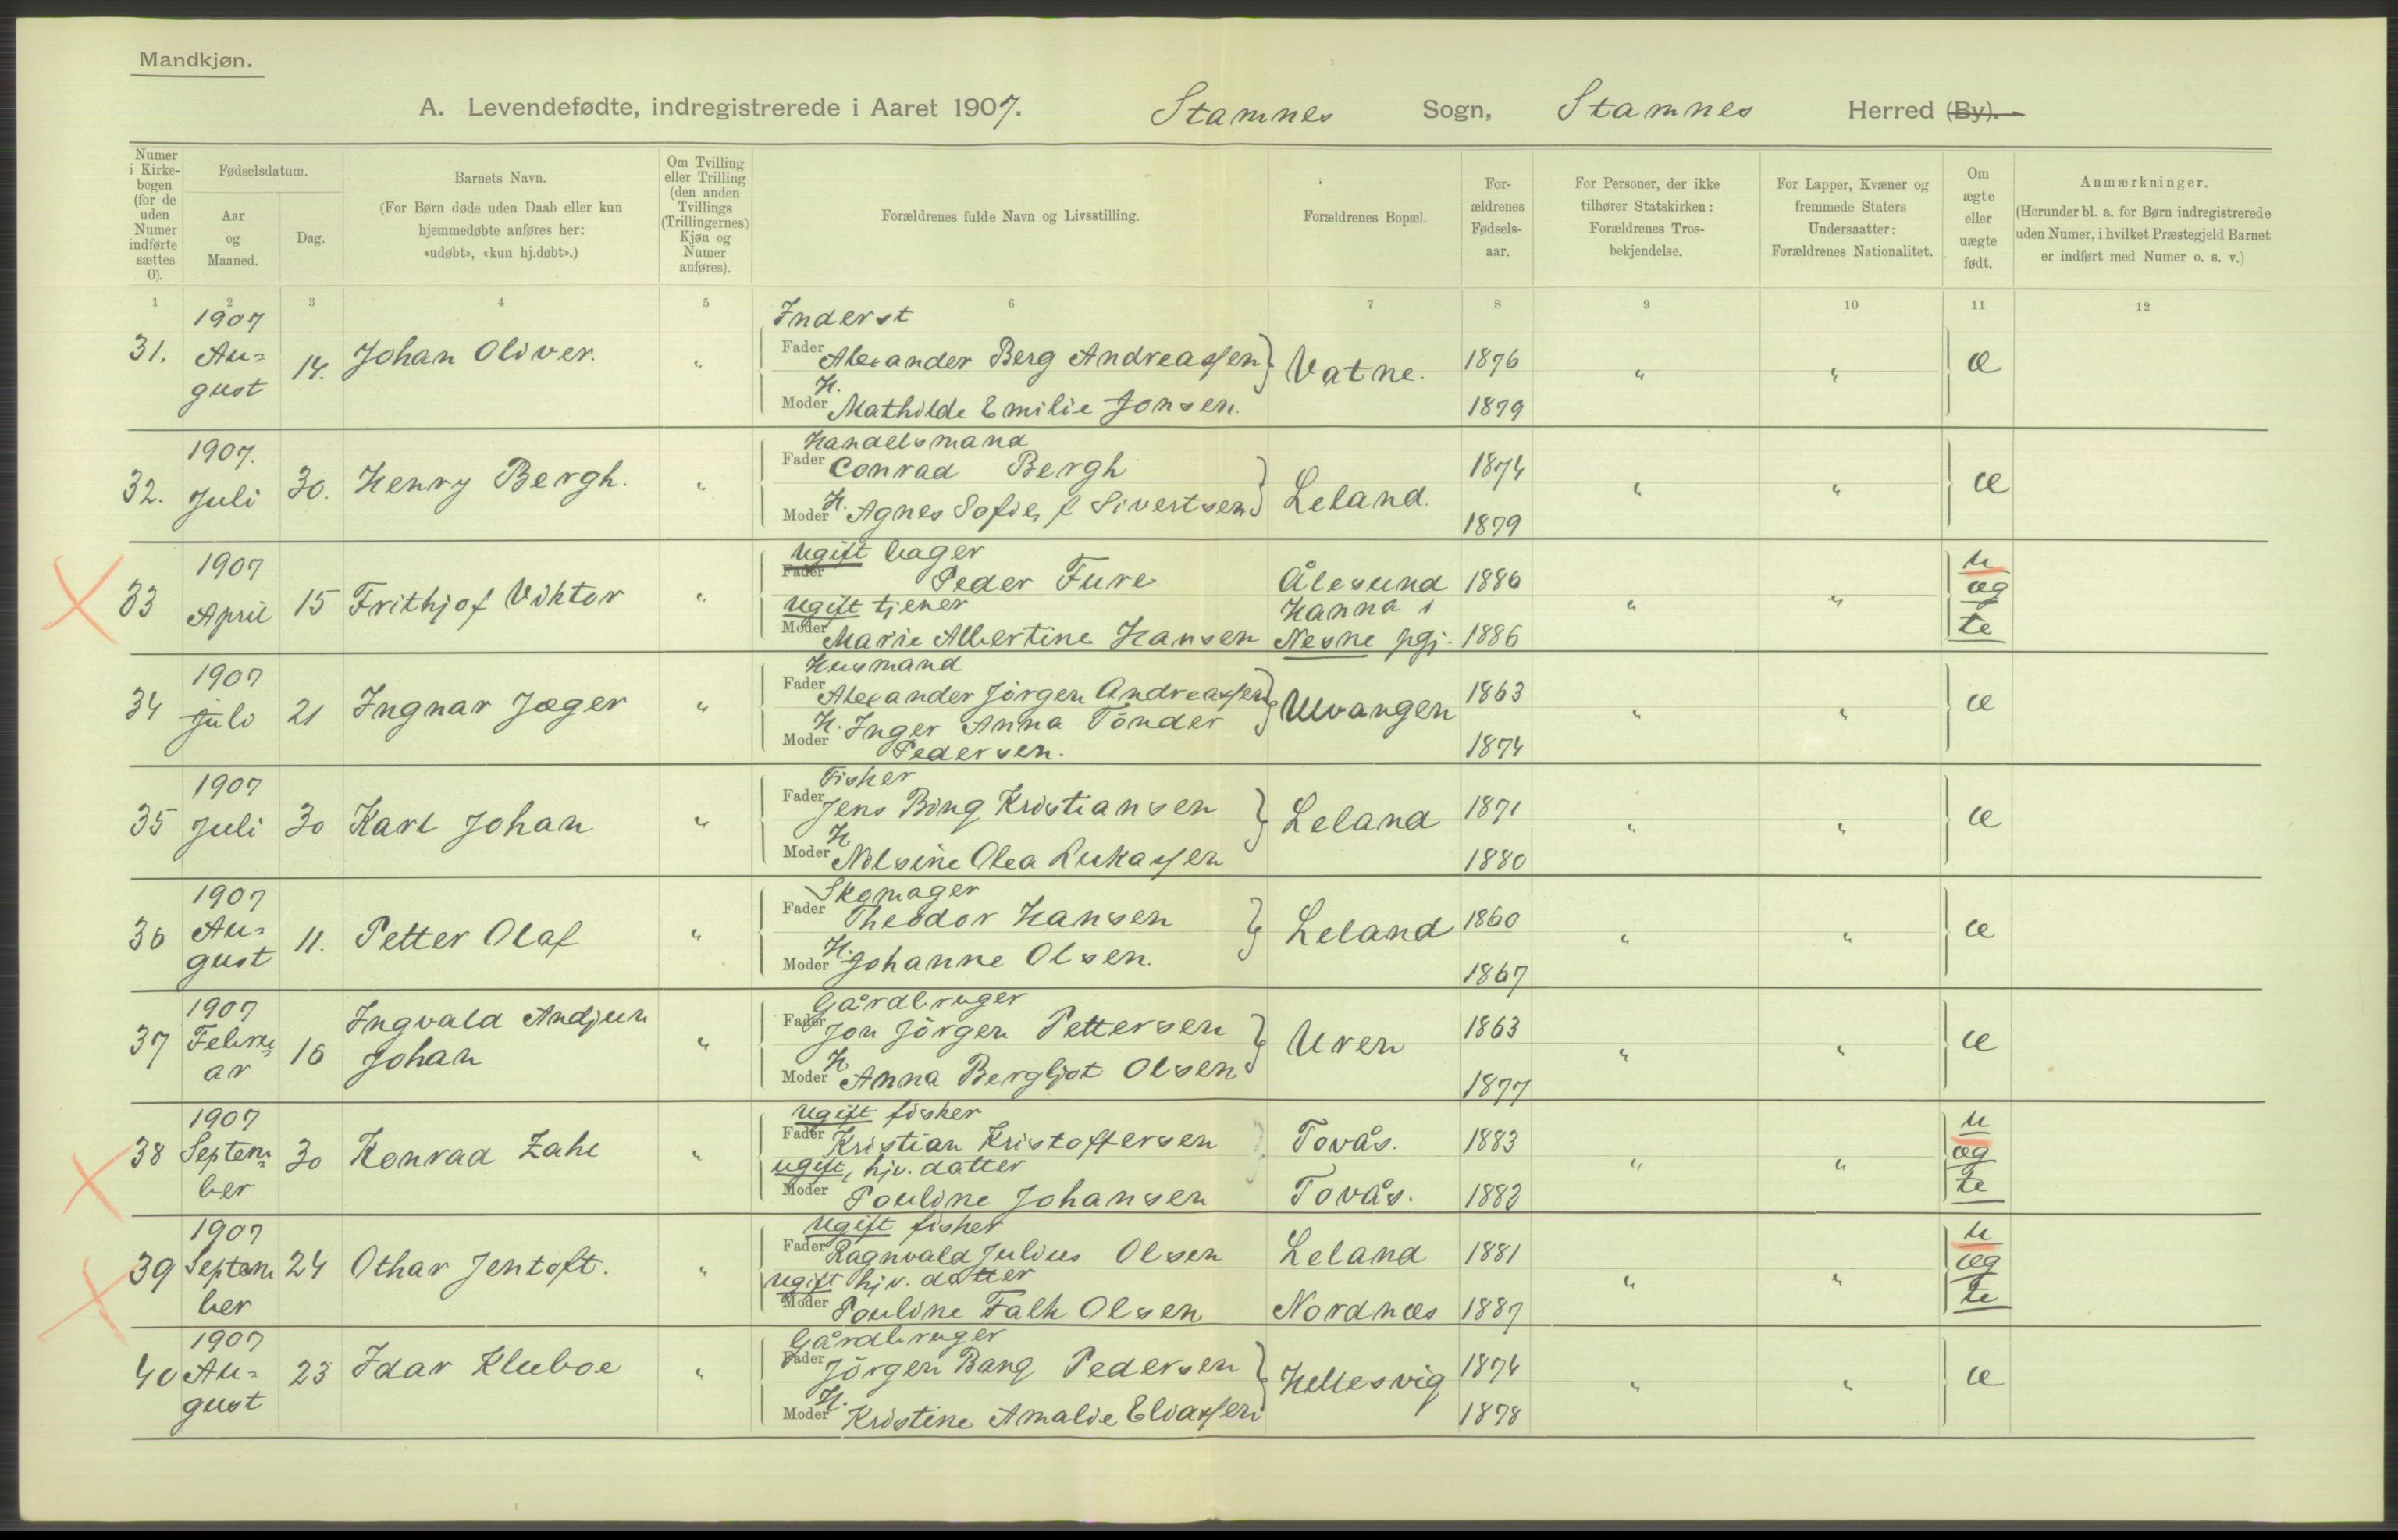 Mandkjøn.
A. Levendefødte, indregistrerede i Aaret 1907. Stamnes Sogn, Stamnes Herred (By).
Numer i Kirke- bogen (for de uden Numer indførte sættes 0).
Fødselsdatum.
Aar og Maaned.
Dag.
Barnets Navn.
(For Børn døde uden Daab eller kun hjemmedøbte anføres her: «udøbt», «kun hj.døbt».)
Om Tvilling eller Trilling (den anden Tvillings (Trillingernes) Kjøn og Numer anføres).
Forældrenes fulde Navn og Livsstilling.
Forældrenes Bopæl.
For- ældrenes Fødsels- aar.
For Personer, der ikke tilhører Statskirken: Forældrenes Tros- bekjendelse.
For Lapper, Kvæner og fremmede Staters Undersaatter: Forældrenes Nationalitet.
Om ægte eller uægte født.
Anmærkninger.
(Herunder bl. a. for Børn indregistrerede uden Numer, i hvilket Præstegjeld Barnet er indført med Numer o. s. v.)
1 2 3 4 5 6 7 8 9 10 11 12
1907 Inderst
31. Au= gust 14. Johan Oliver. " Fader Alexander Berg Andreassen Vatne. 1876 " " æ
H. Moder Mathilde Emilie Jonsen. 1879
1907. Handelsmand
32. Juli 30. Henry Bergh. " Fader Conrad Bergh Leland. 1874 " " æ
H. Moder Agnes Sofie, f Sivertsen 1879
1907 ugift bager
33 April 15 Frithjof Viktor " Fader Peder Fure Ålesund 1886 " " u æg te
ugift tjener Hanna i
Moder Marie Albertine Hansen Nesne pgj. 1886
1907 Husmand
34 juli 21 Ingnar Jæger " Fader Alexander Jörgen Andreassen Ulvangen 1863 " " æ
H. Moder Inger Anna Tönder Pedersen. 1874
1907 Fisker
35 Juli 30 Karl Johan " Fader Jens Bing Kristiansen Leland 1871 " " æ
H Moder Nilsine Olea Lukassen 1880
1907 Skomager
36 Au= gust 11. Petter Olaf " Fader Theodor Hansen Leland 1860 " " æ
H. Moder Johanne Olsen. 1867
1907 Gårdbruger
37 Febru= ar 16 Ingvald Andjur Johan " Fader Jon Jörgen Pettersen Uren 1863 " " æ
H Moder Anna Bergljot Olsen 1877
1907 ugift fisker
38 Septem= ber 30 Konrad Zahl " Fader Kristian Kristoffersen Tovås. 1883 " " u æg te
ugift, hjv. datter
Moder Pouline Johansen Tovås. 1883
1907 ugift fisker
39 Septem ber 24 Othar Jentoft. " Fader Ragnvald Julius Olsen Leland 1881 " " u æg te
ugift hjv. datter
Moder Pouline Falk Olsen Nordnæs 1887
1907 Gårdbruger
40 Au= gust 23 Idar Kluboe " Fader Jörgen Bang Pedersen Hellesvig 1874 " " æ
H. Moder Kristine Amalie Eliassen 1878